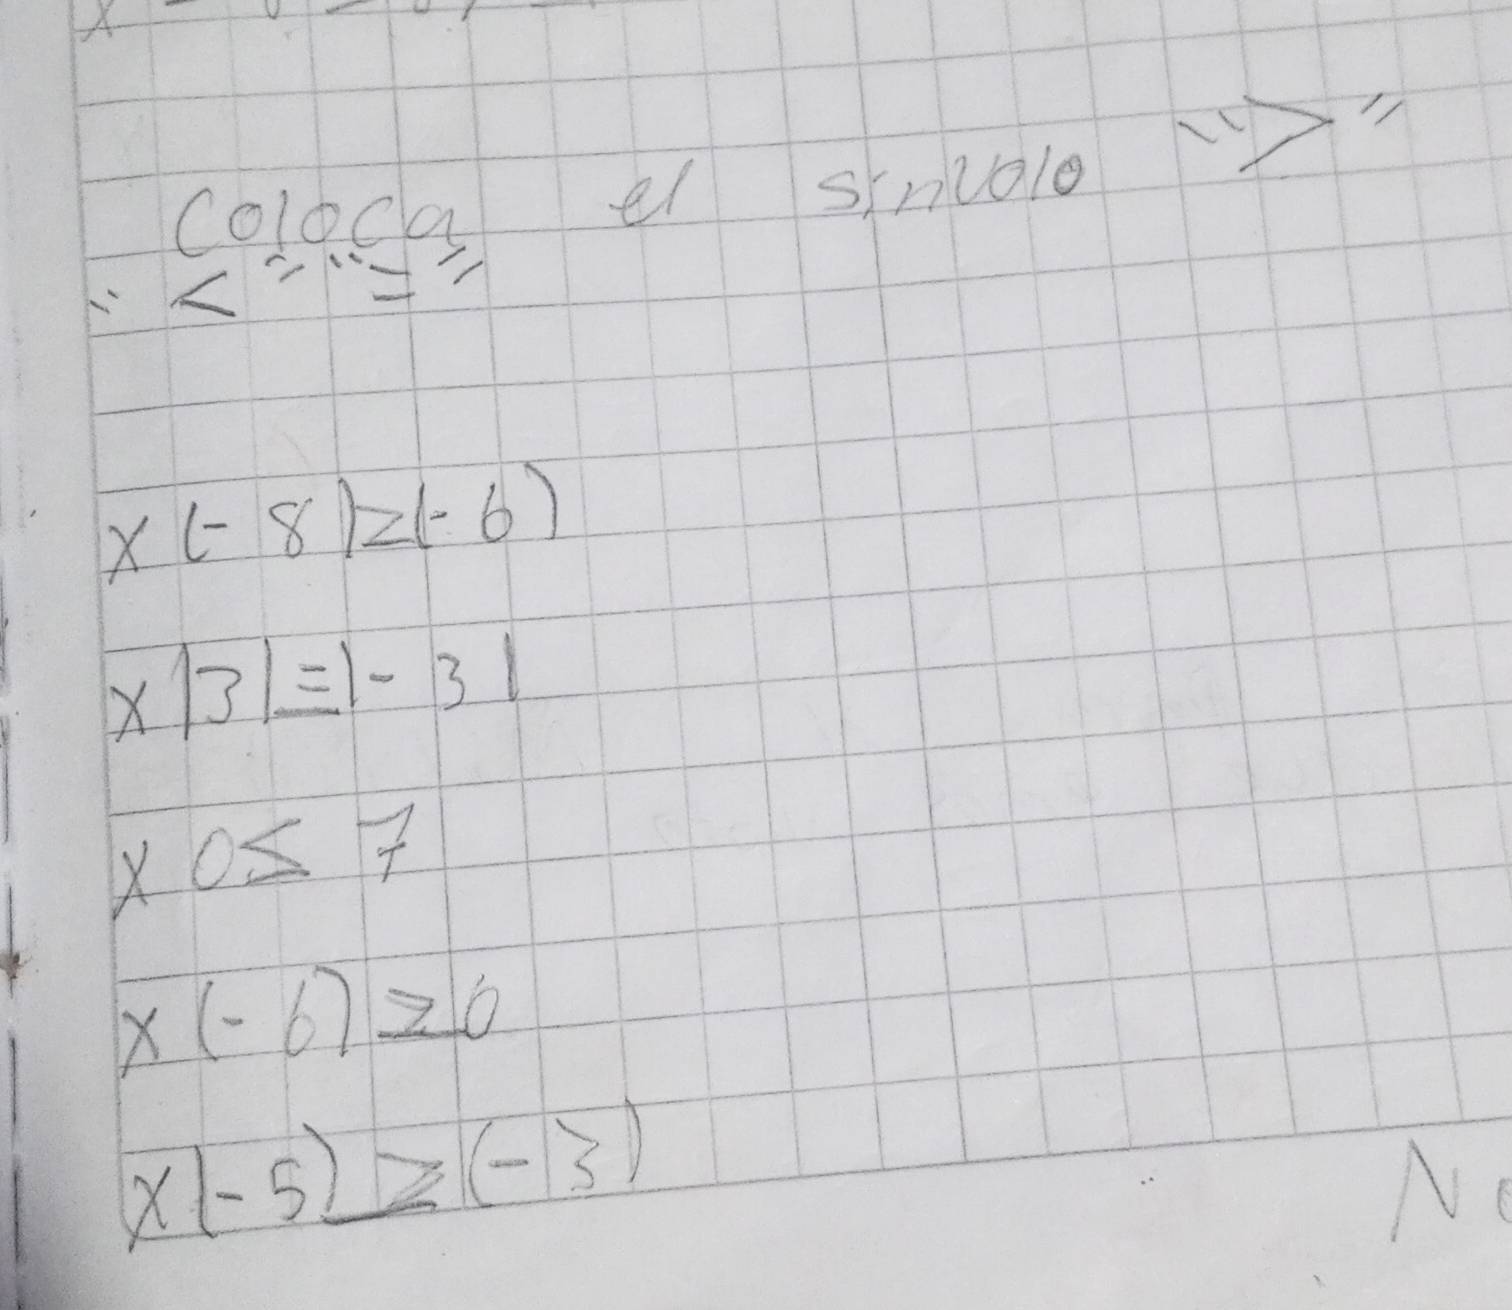 Coloca el sinvolo ">"
"<" "="
x (-8)≥(-6)
x |3|=|-3|
x 0≤ 7
x (-6) ≥ 6
x (-5) ≥ (-3)